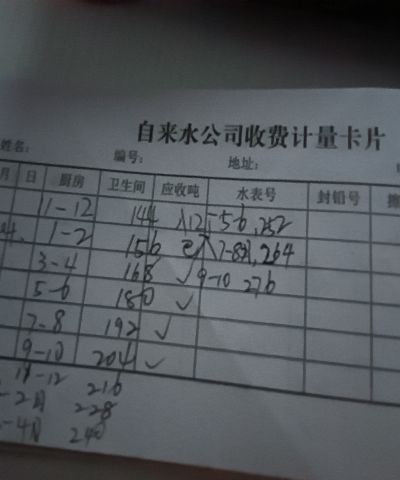 自来水公司收费计量卡片
姓名： 编号： 地址：
月 日 厨房 卫生间 应收吨 水表号 封铅号
11-12 144 5-6, 252
1-2 156 7-8月, 264
3-4 168 ✓ 9-10 276
5-6 180 ✓
7-8 192 ✓
9-10 204 ✓
11-12 216
-2月 228
-4月 240